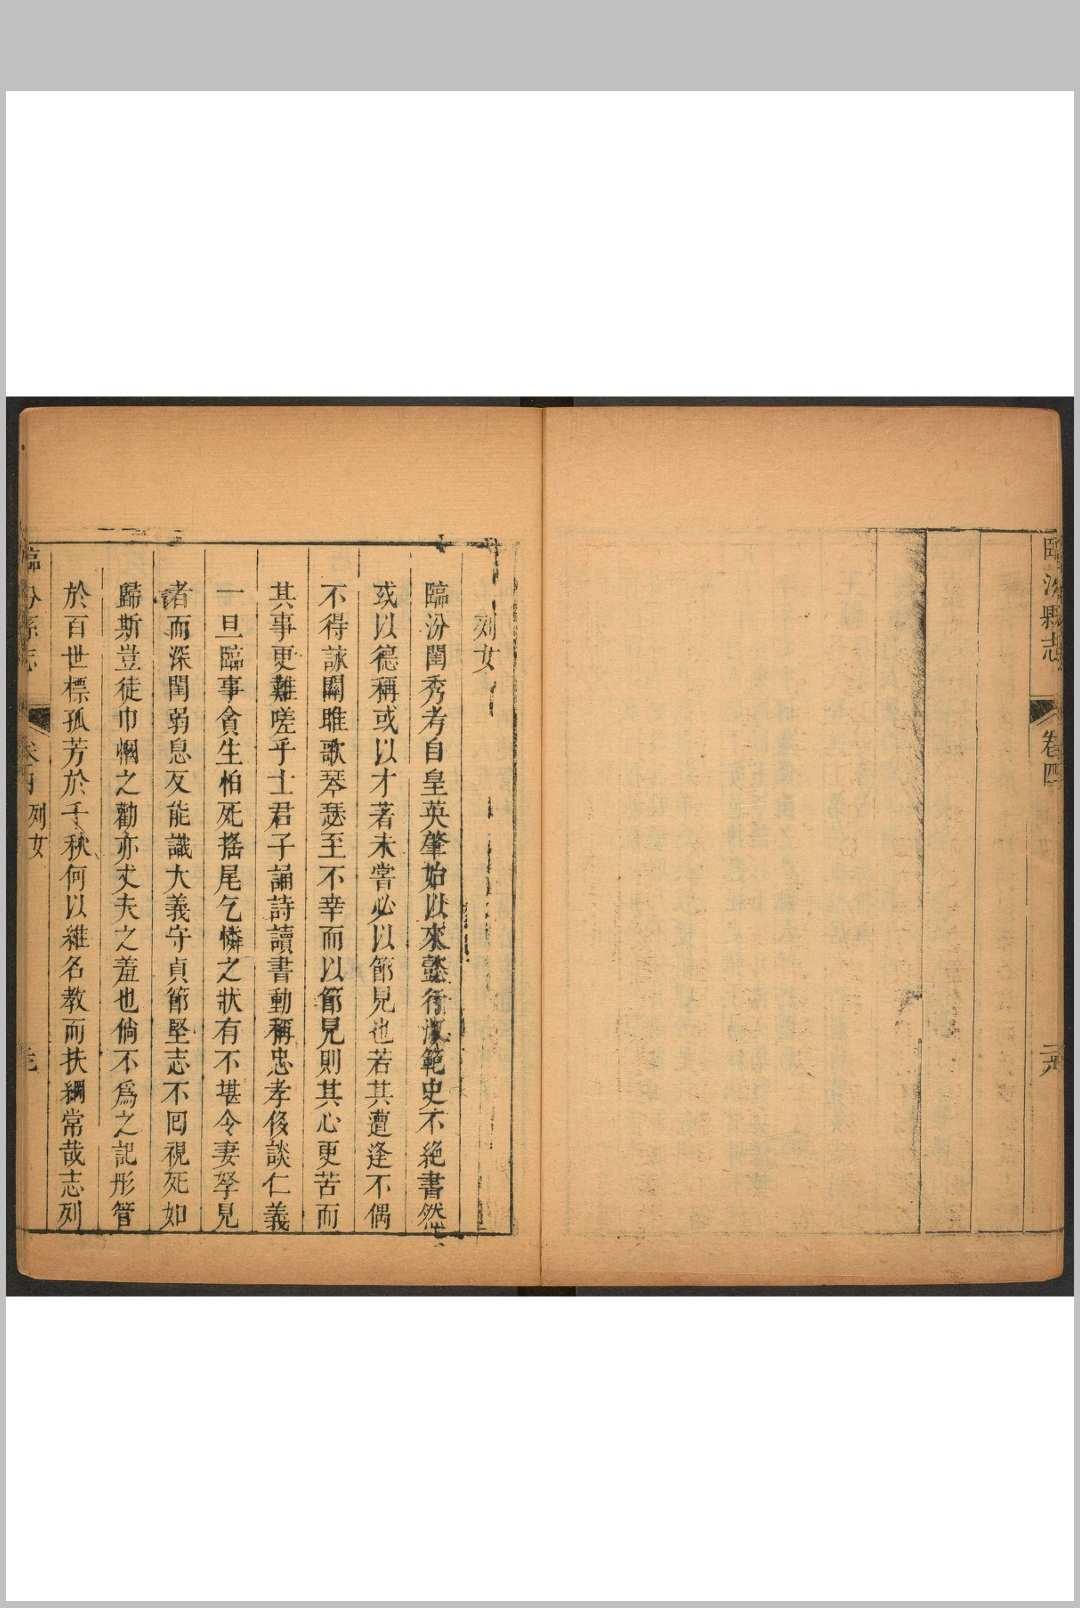 臨汾縣志
卷四
列女
臨汾閨秀考自皇英肇始以來懿行淑範史不絕書然
或以德稱或以才著未嘗必以節見也若其遭逢不偶
不得詠關雎歌琴瑟至不幸而以節見則其心更苦而
其事更難嗟乎士君子誦詩讀書動稱忠孝侈談仁義
一旦臨事貪生怕死搖尾乞憐之狀有不堪令妻孥見
者而深閨弱息反能識大義守貞節堅志不回視死如
歸斯豈徒巾幗之勸亦丈夫之羞也倘不爲之記彤管
於百世標孤芳於千秋何以維名教而扶綱常哉志列
列女